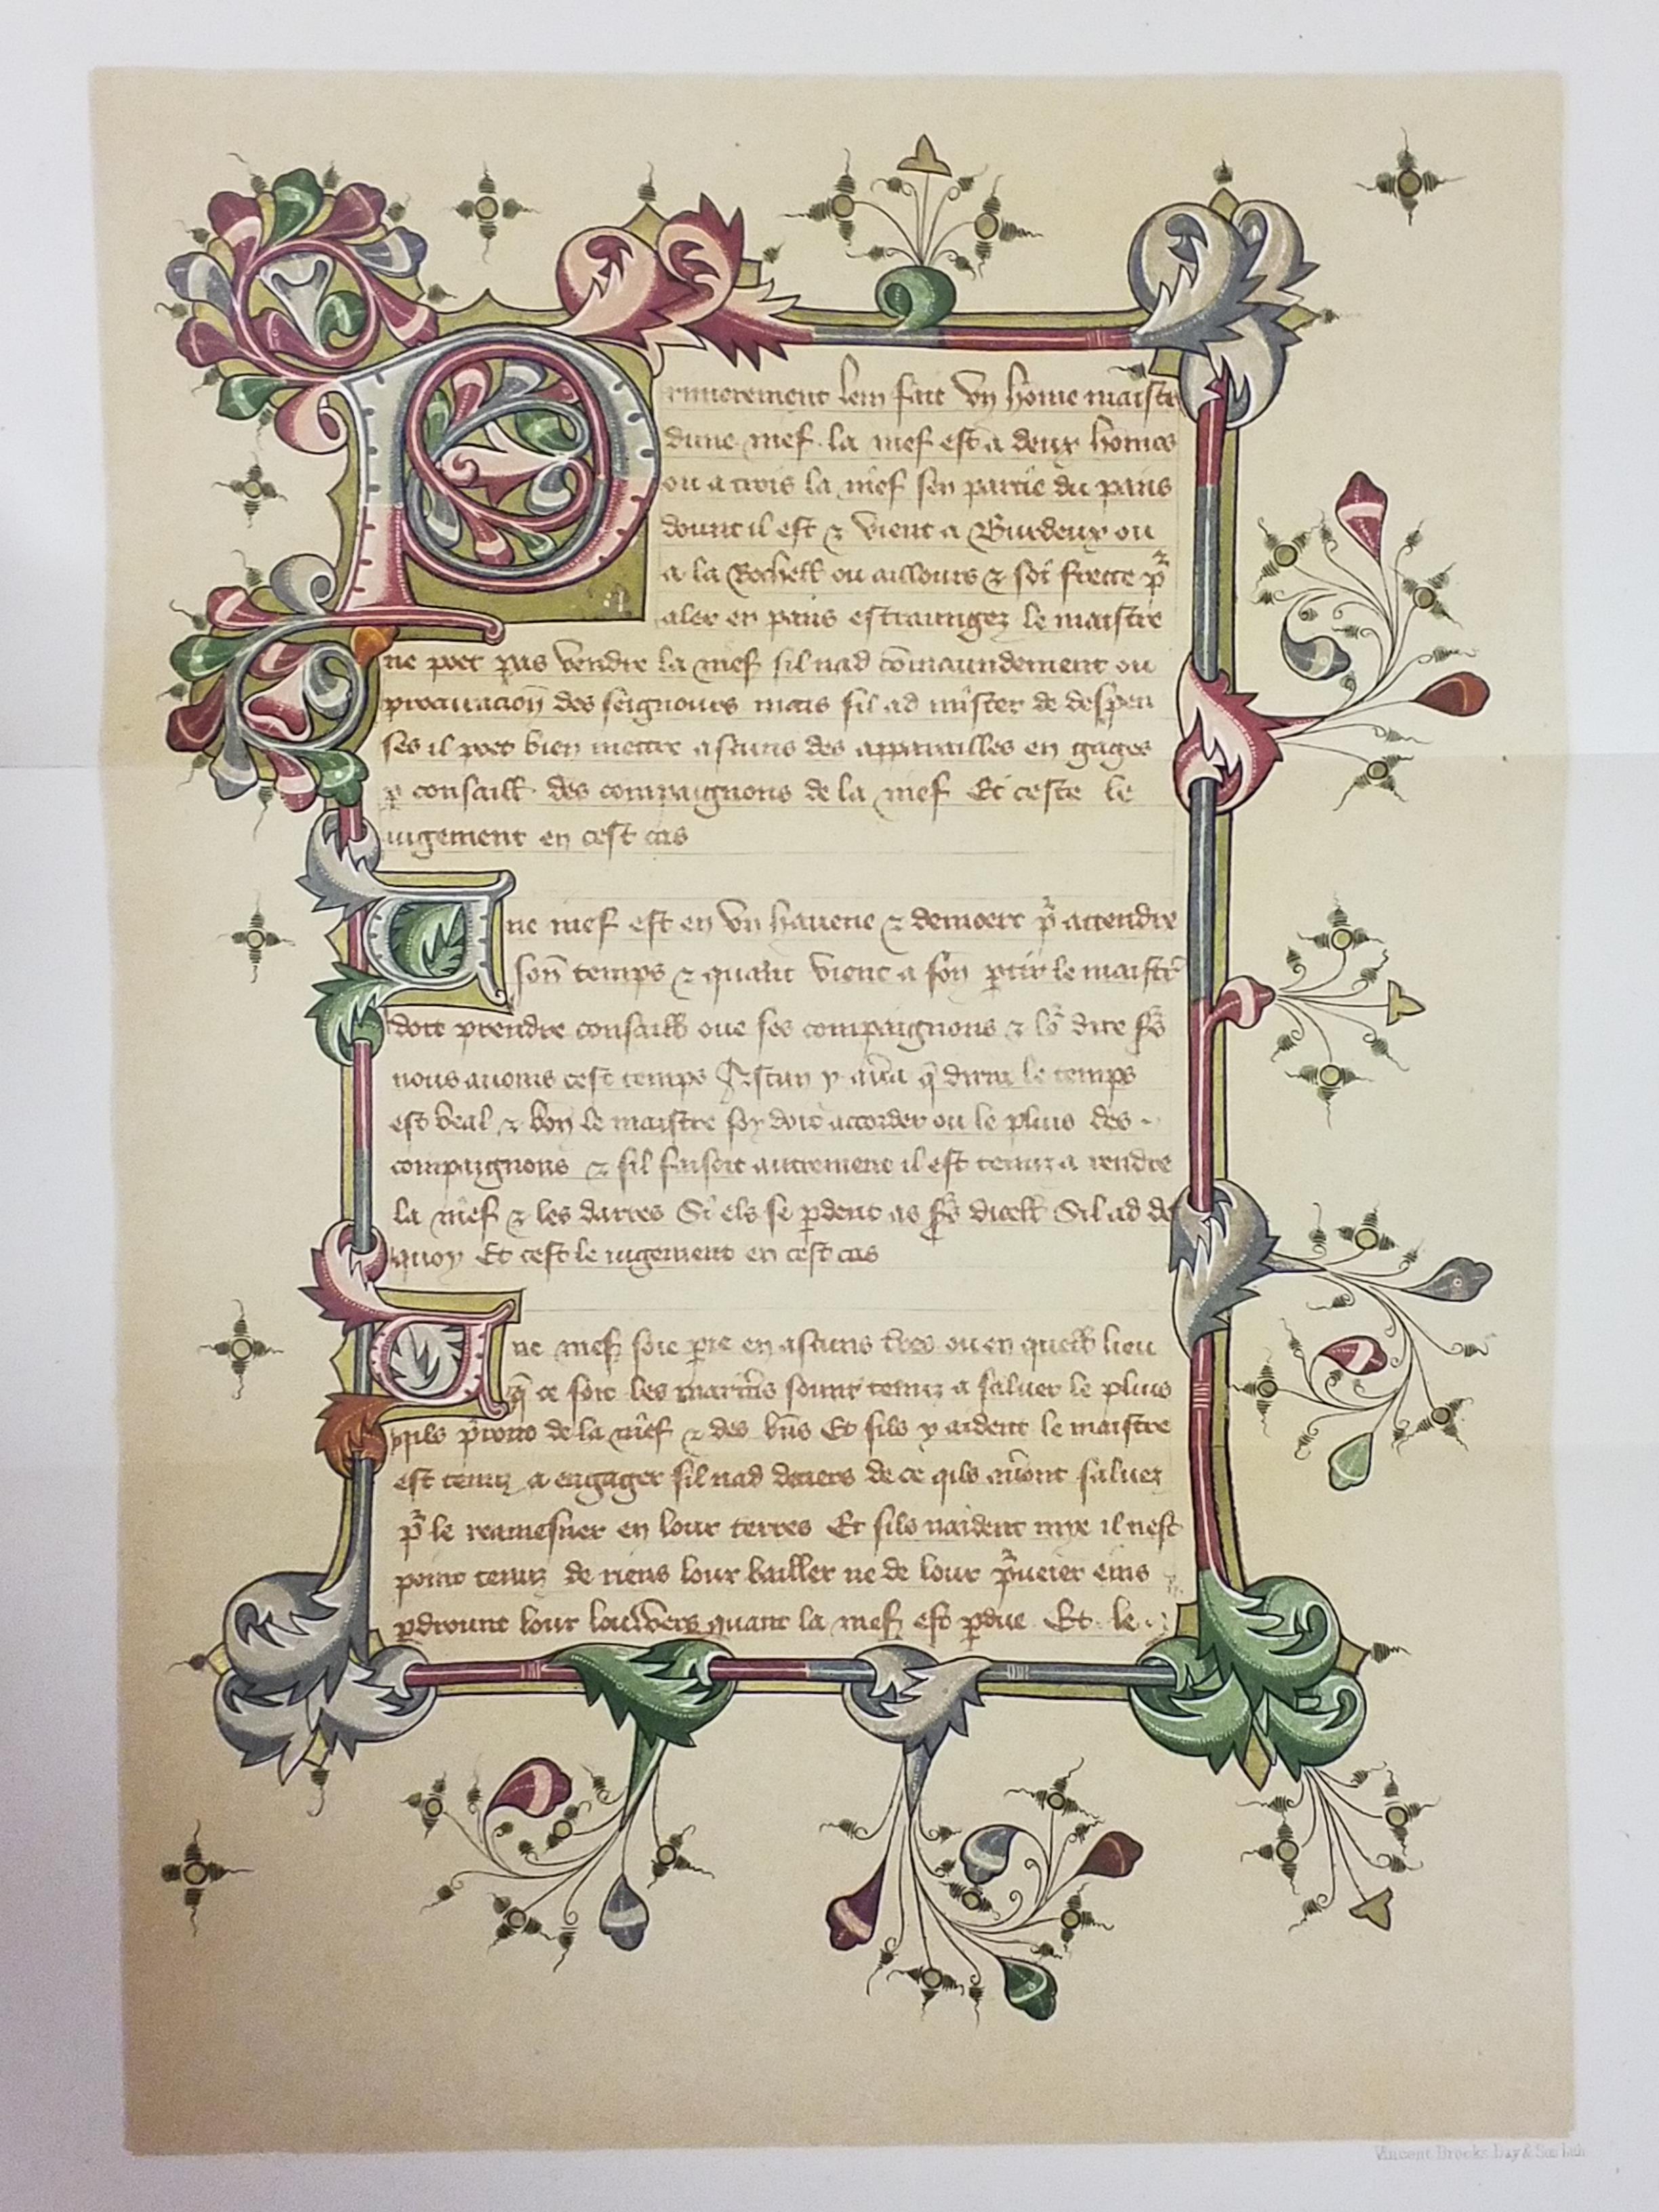 Primerement lem fait vn home maistr
dune nief . la nief est a deux homes
ou a trois la nief sen partie du pais
dount il est & vient a Burdeux ou
a la Rochell ou aillours & soi frette pr
aler en pais estraungez le maistre
ne poet pas vendre la nief sil nad comaundement ou
procuracion des seignours mais sil ad mister de despen
ses il poet bien mettre ascuns des apparailles en gages
p consaill . des compaignons de la nief Et ceste le
iugement en cest cas
Une nief est en vn hauene & demoert pr attendre
son temps & quant vient a son ptir le maistr
doit prendre consaill oue ses compaignons & lor dire srs
nous auoms cest temps Ascun y aura q dirra le temps
est beal & bon le maistre soy doit accorder ou le pluis des
compaignons & sil faisoit autrement il est tenuz a rendre
la nief & les darres Si els se pdent as srs dicell Sil ad de
quoy Et cest le iugement en cest cas
Une nief soit pie en ascuns tres ou en quell lieu
q ce soit les mariners sount tenuz a saluer le pluis
qils pront de la nief & des bns Et sils y aident le maistre
est tenuz a engager sil nad deners de ce qils auront saluez
pr le reamesner en lour terres Et sils naident mye il nest
point tenuz de riens lour bailler ne de lour prueier eins
pdrount lour louwers quant la nief est pdue Et le
Vincent Brooks Day & Son Lith